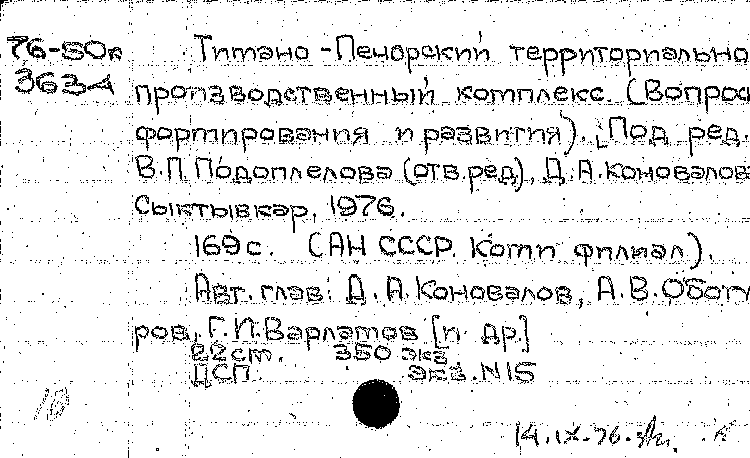 76-50в Титано-Печорский территориально
363-А производственный комплекс. (Вопрос
формирования и развития). [Под ред.
В.П. Подоплелова (отв.ред), Д.А.Коновалов
Сыктывкар, 1976.
169с. (АН СССР. Коми филиал).
Авт. глав: Д.А.Коновалов, А.В.Обогу
ров, Г.П.Варламов [и др.]
22ст. 350 экз
ЦСП. экз.N15
14.IX.76.